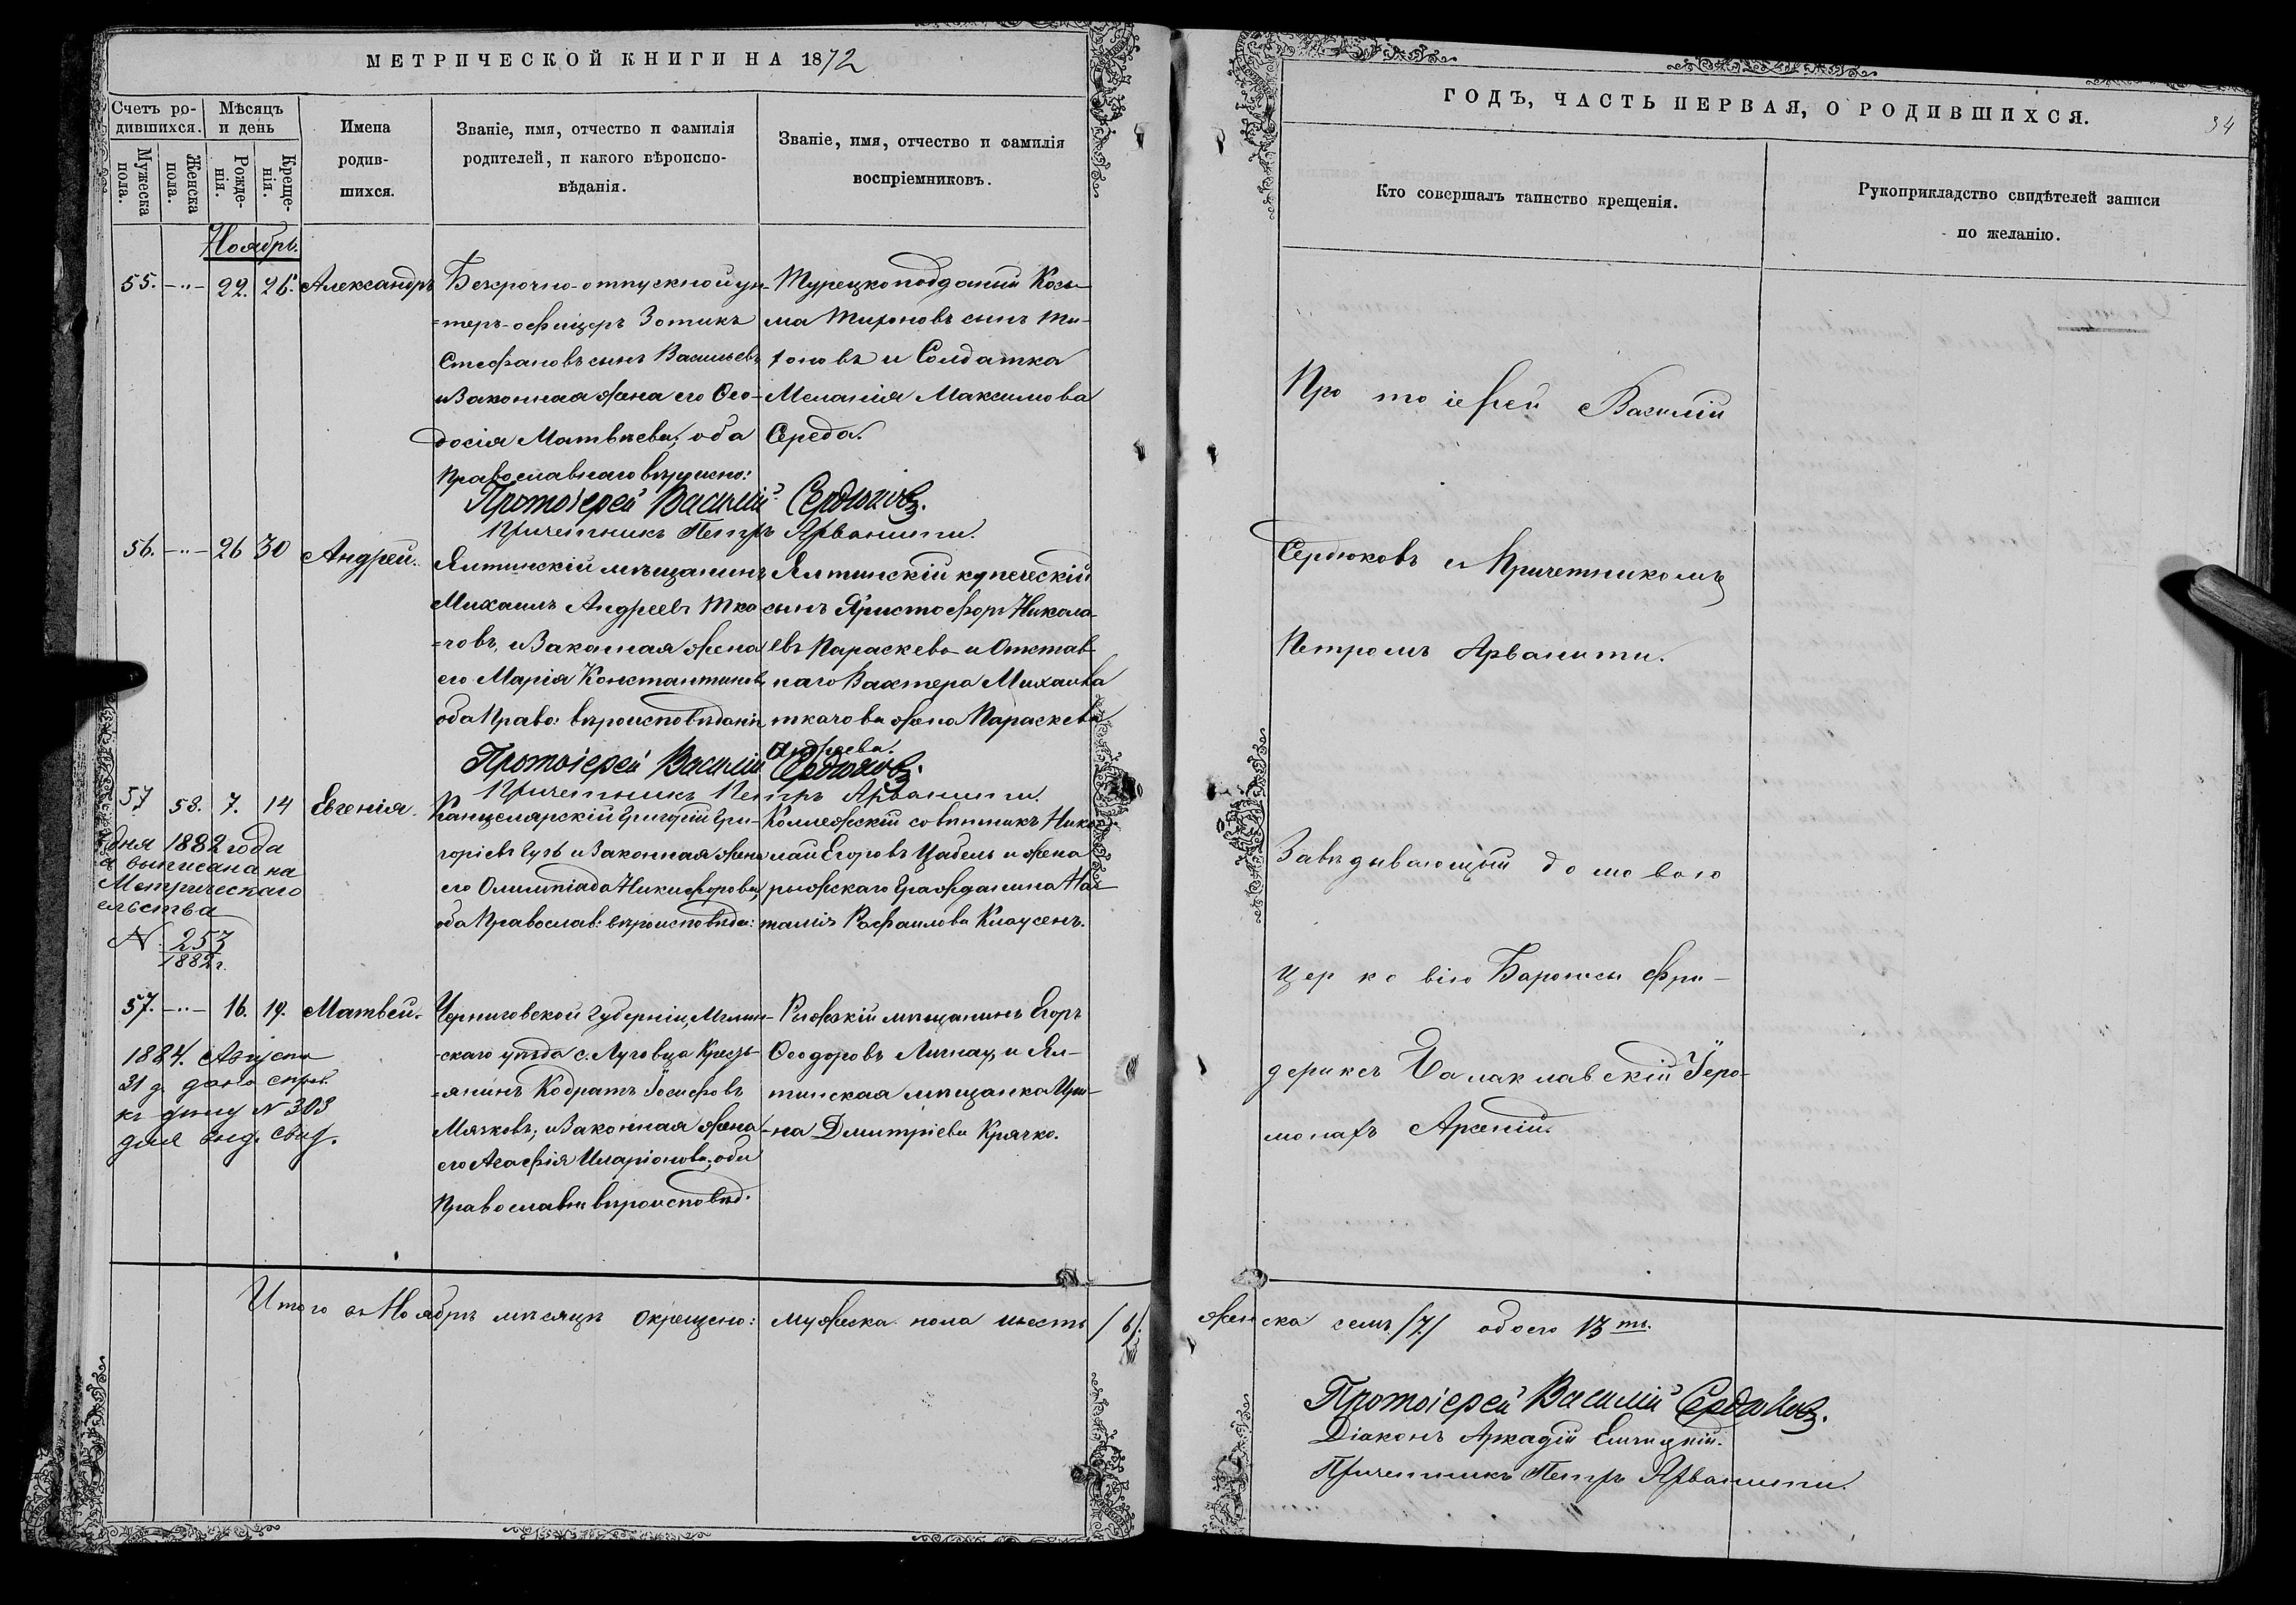 МЕТРИЧЕСКОЙ КНИГИ НА 1872
Счетъ ро-
дившихся.
Мѣсяцъ
и день
Мужеска
пола.
Женска
пола.
Рожде-
нія.
Креще-
нія.
Имена
родив-
шихся.
Званіе, имя, отчество и фамилія
родителей, и какого вѣроиспо-
вѣданія.
Званіе, имя, отчество и фамилія
воспріемниковъ.
Ноябрь.
55. -"- 22. 26. Александръ
Безсрочно-отпускной ун-
=теръ-офицеръ Зотикъ
Стефановъ сынъ Васильевъ
и Законная жена его Ѳео-
досія Матвѣева, оба
Православнаго
Турецкоподданый Козь-
ма Тихоновъ сынъ Ти-
хоновъ и Солдатка
Меланія Максимова
Середа.
Протоіерей Василій Сердюковъ.
Причетникъ Петръ Арванити.
56. -"- 26 30 Андрей.
Ялтинскій мѣщанинъ
Михаилъ Андреевъ Тка-
=човъ, и Законная жена
его Марія Константинова
оба Право: вѣроисповѣданія
Ялтинскій купеческій
сынъ Христофоръ Никола-
евъ Параскева и Отстав-
наго Вахтера Михаила
ткачова жена Параскева
Андреева.
Протоіерей Василій Сердюковъ.
Причетникъ Петръ Арванити.
57 58. 7. 14 Евгенія.
Канцелярскій Григорій Гри-
горіевъ и Законная жена
его Олимпіада Никифорова,
оба Православ: вѣроисповѣда:
Коллежскій совѣтникъ Нико-
лай Егоровъ Цабель и жена
рыжскаго Гражданина На-
талія Рафаилова Клаусенъ.
дня 1882 года
выписана на
Метрическаго
ельства
N. 253
1882 г.
57. -"- 16. 19. Матвей.
Черниговской Губерніи, Мглин-
-скаго уѣзда с. Луговца Кресть-
=янинъ Кодратъ Іосифовъ
Мячковъ, и Законная жена
его Агафія Иларіонова, оба
Православн вѣроисповѣд.
Рыжскій мѣщанинъ Егоръ
Ѳеодоровъ и Ял-
тинская мѣщанка Ири-
-на Дмитріева Крячко.
1884. Августа
31 д. дана справ.
къ дѣлу N 303
для выд. свид.
Итого въ Ноябрѣ мѣсяцѣ окрещено: мужеска пола шесть /6/.
ГОДЪ, ЧАСТЬ ПЕРВАЯ, О РОДИВШИХСЯ.
34
Кто совершалъ таинство крещенія.
Рукоприкладство свидѣтелей записи
по желанію.
Протоіерей Василій
Сердюковъ и Причетникомъ
Петромъ Арванити.
Завѣдывающій домовою
церковію Баронсы Фри-
дериксъ Балаклавскій Іеро-
монахъ Арсеній.
женска семь /7/ обоего 13ть.
Протоіерей Василій Сердюковъ.
Діаконъ Аркадій
Причетникъ Петръ Арванити.